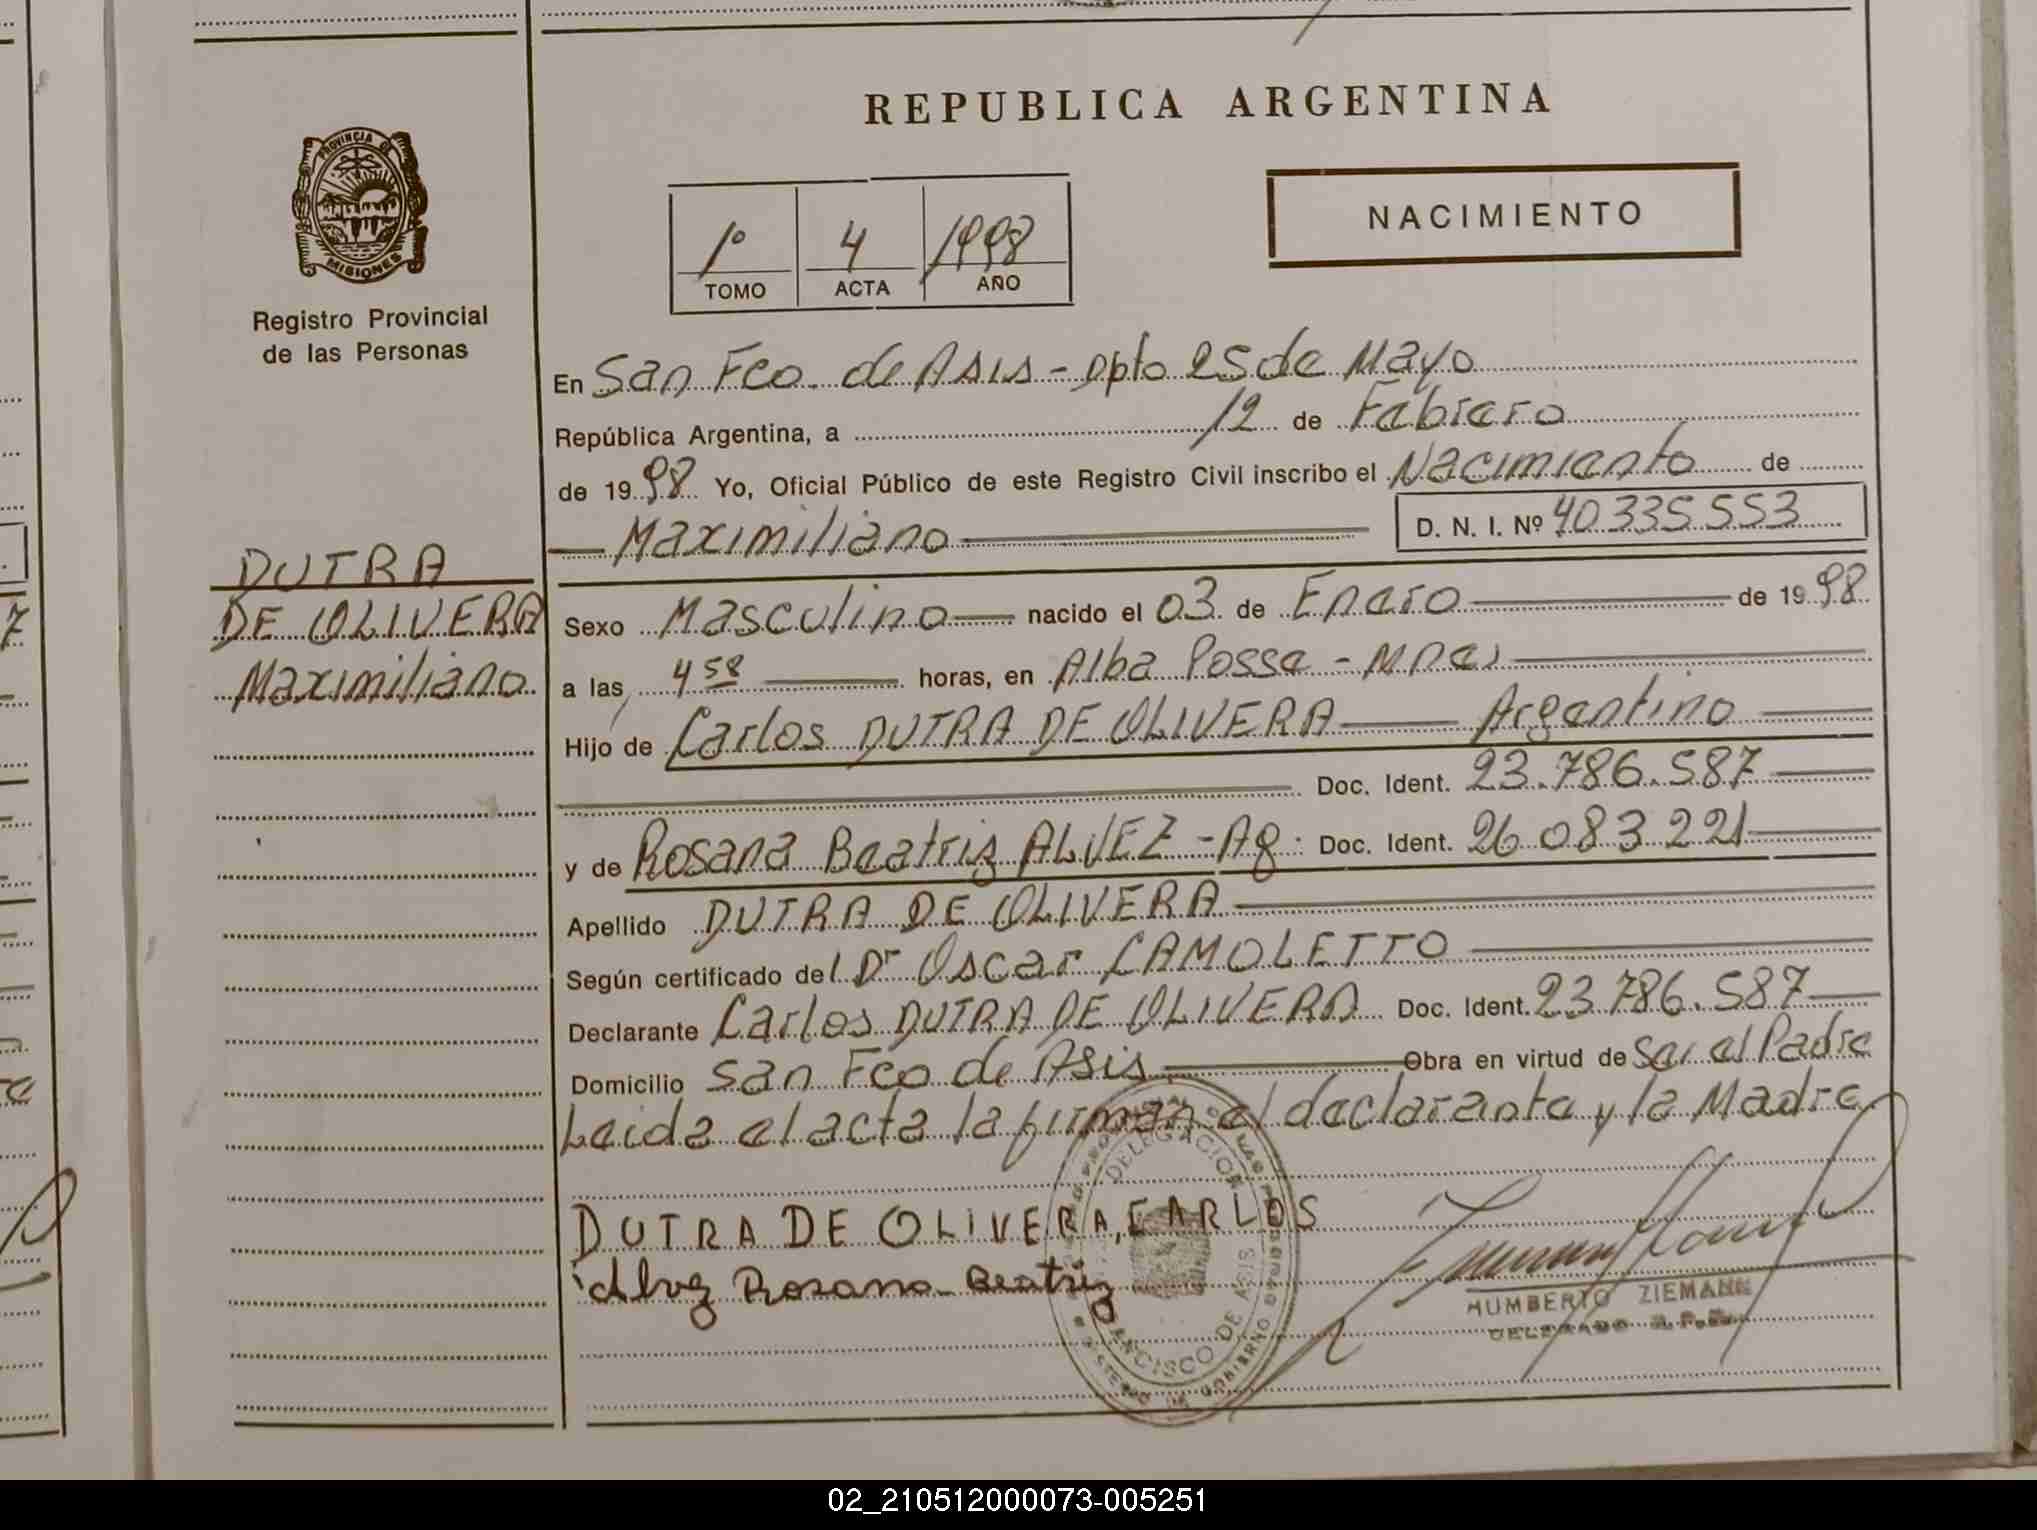 REPUBLICA ARGENTINA
PROVINCIA DE
MISIONES
Registro Provincial
de las Personas
NACIMIENTO
1º 4 1998
TOMO ACTA AÑO
En San Fco. de Asis - Dpto 25 de Mayo
República Argentina, a 12 de Febrero
de 1998 Yo, Oficial Público de este Registro Civil inscribo el Nacimiento de
Maximiliano D. N. I. Nº 40.335.553
DUTRA
DE OLIVERA
Maximiliano
Sexo Masculino nacido el 03 de Enero de 1998
a las 4 58 horas, en Alba Posse - Mnes
Hijo de Carlos DUTRA DE OLIVERA Argentino
Doc. Ident. 23.786.587
y de Rosana Beatriz ALVEZ - Ag. Doc. Ident. 26.083.221
Apellido DUTRA DE OLIVERA
Según certificado del Dr Oscar CAMOLETTO
Declarante Carlos DUTRA DE OLIVERA Doc. Ident. 23.786.587
Domicilio San Fco de Asis Obra en virtud de Ser el Padre
Leida el acta la firman el declarante y la Madre
DELEGACION
DUTRA DE OLIVERA, CARLOS
Alvez Rosana Beatriz
HUMBERTO ZIEMANN
DELEGADO
02_210512000073-005251